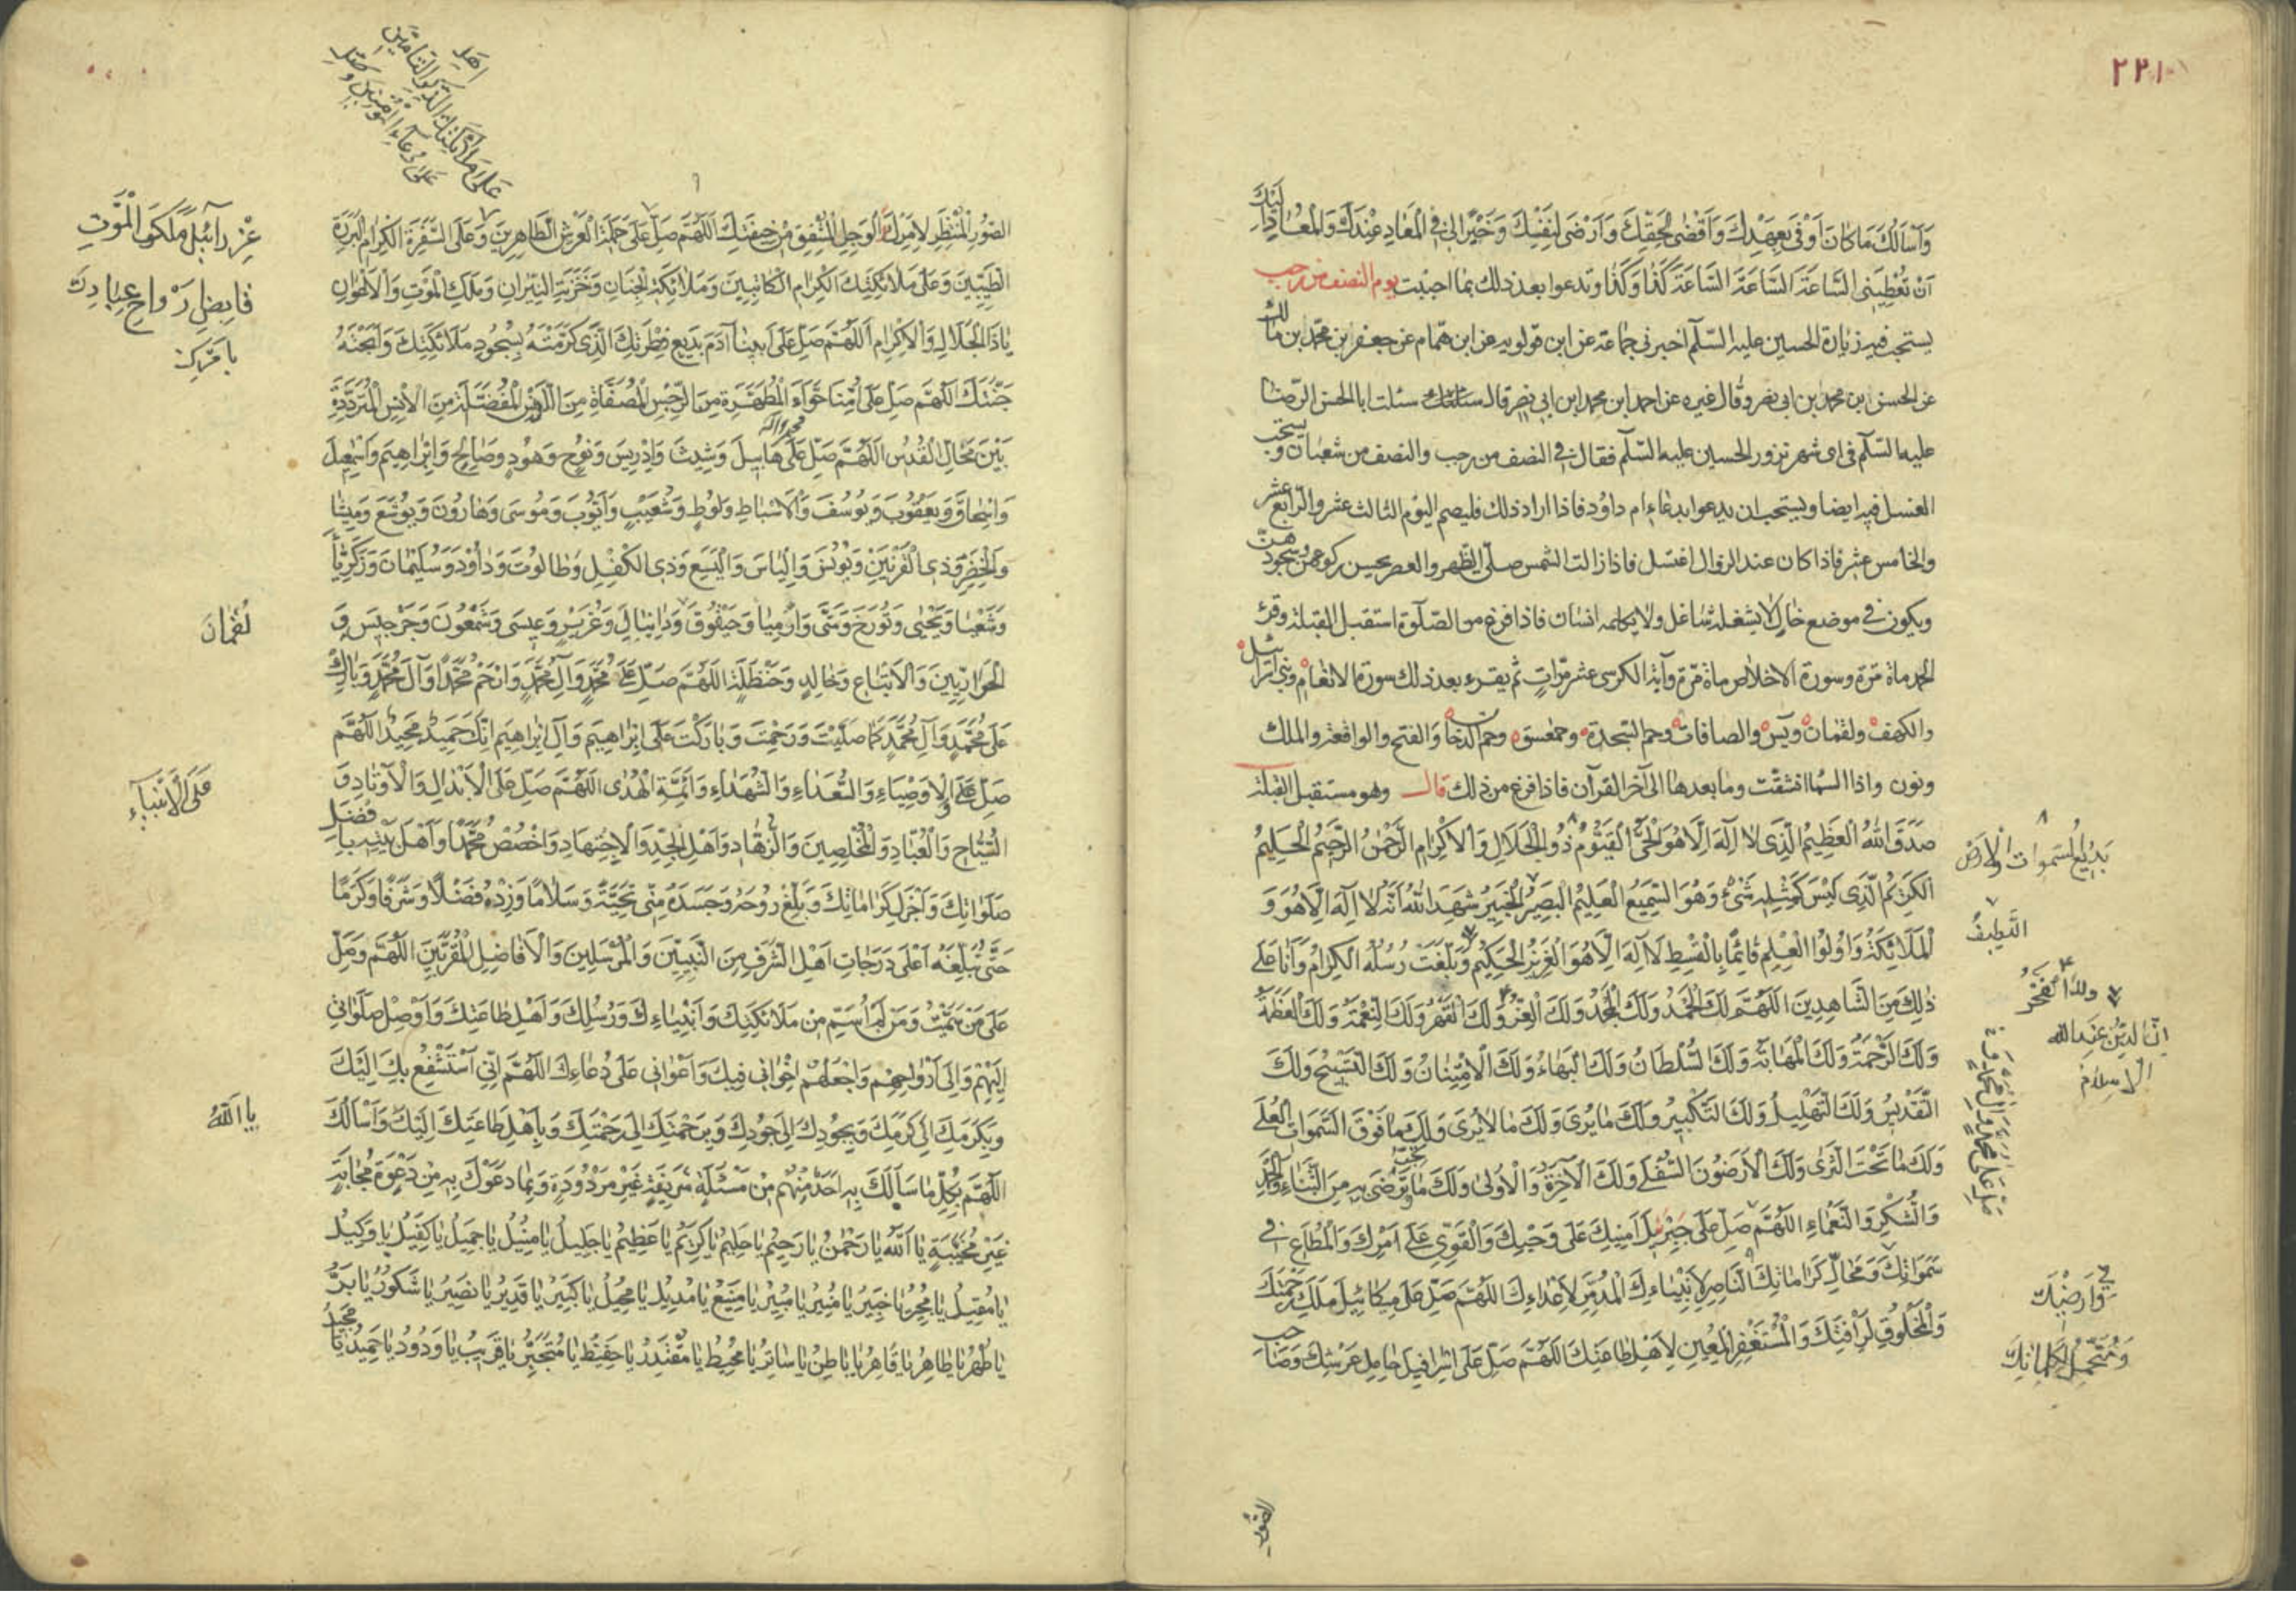 ٢٢١
وَاَسْاَلُكَ مَا كَانَ اَوْفٰى بِعَهْدِكَ وَاَقْضٰى لِحَقِّكَ وَاَرْضٰى لِنَفْسِكَ وَخَيْرًا لِى فِى الْمَعَادِ عِنْدَكَ وَالْمَعَادِ اِلَيْكَ
اَنْ تُعْطِيَنِى السَّاعَةَ السَّاعَةَ السَّاعَةَ كَذَا وَكَذَا وتدعوا بعد ذلك بما احببت يوم النصف من رجب
يستحب فيه زيارة الحسين عليه السلام اخبرنى جماعة عن ابن قولويه عن ابن همام عن جعفر بن محمد بن مالك
عن الحسن بن محمد بن ابى نصر وقال غيره عن احمد ابن محمد ابن ابى نصر قال سئلت ابا الحسن الرضا
عليه السلام فى اى شهر نزور الحسين عليه السلام فقال فى النصف من رجب والنصف من شعبان ويستحب
الغسل فيه ايضا ويستحب ان يدعوا بدعاء ام داود فاذا اراد ذلك فليصم اليوم الثالث عشر والرابع عشر
والخامس عشر فاذا كان عند الزوال اغتسل فاذا زالت الشمس صلى الظهر والعصر يحسن ركوعهن وسجودهن
ويكون فى موضع خال لا يشغله شاغل ولا يكلمه انسان فاذا فرغ من الصلوة استقبل القبلة وقرء
الحمد ماة مرة وسورة الاخلاص ماة مرة وآية الكرسى عشر مرات ثم يقرء بعد ذلك سورة الانعام وبنى اسرائيل
والكهف ولقمان ويس والصافات وحم السجدة وحمعسق وحم الدخان والفتح والواقعة والملك
ونون واذا السماء انشقت وما بعدها الى آخر القرآن فاذا فرغ من ذلك قال وهو مستقبل القبلة
صَدَقَ اللهُ الْعَظِيمُ الَّذِى لَا اِلٰهَ اِلَّا هُوَ الْحَىُّ الْقَيُّومُ ذُو الْجَلَالِ وَالْاِكْرَامِ الرَّحْمٰنُ الرَّحِيمُ الْحَلِيمُ
بَدِيعُ السَّمٰوَاتِ وَالْاَرْضِ
الْكَرِيمُ الَّذِى لَيْسَ كَمِثْلِهِ شَىْءٌ وَهُوَ السَّمِيعُ الْعَلِيمُ الْبَصِيرُ الْخَبِيرُ شَهِدَ اللهُ اَنَّهُ لَا اِلٰهَ اِلَّا هُوَ وَ
اللَّطِيفُ
الْمَلَائِكَةُ وَاُولُوا الْعِلْمِ قَائِمًا بِالْقِسْطِ لَا اِلٰهَ اِلَّا هُوَ الْعَزِيزُ الْحَكِيمُ وَبَلَّغَتْ رُسُلُهُ الْكِرَامُ وَاَنَا عَلٰى
ولك الفخر
ان الدين عند الله
الاسلام
ذٰلِكَ مِنَ الشَّاهِدِينَ اللّٰهُمَّ لَكَ الْحَمْدُ وَلَكَ الْمَجْدُ وَلَكَ الْعِزُّ وَلَكَ الْقَهْرُ وَلَكَ النِّعْمَةُ وَلَكَ الْعَظَمَةُ
وَلَكَ الرَّحْمَةُ وَلَكَ الْمَهَابَةُ وَلَكَ السُّلْطَانُ وَلَكَ الْبَهَاءُ وَلَكَ الْاِمْتِنَانُ وَلَكَ التَّسْبِيحُ وَلَكَ
التَّقْدِيسُ وَلَكَ التَّهْلِيلُ وَلَكَ التَّكْبِيرُ وَلَكَ مَا يُرٰى وَلَكَ مَا لَا يُرٰى وَلَكَ مَا فَوْقَ السَّمٰوَاتِ الْعُلٰى
وَلَكَ مَا تَحْتَ الثَّرٰى وَلَكَ الْاَرَضُونَ السُّفْلٰى وَلَكَ الْآخِرَةُ وَالْاُولٰى وَلَكَ مَا تَرْضٰى بِهِ مِنَ الثَّنَاءِ وَالْحَمْدِ
وَالشُّكْرِ وَالنَّعْمَاءِ اللّٰهُمَّ صَلِّ عَلٰى جَبْرَئِيلَ اَمِينِكَ عَلٰى وَحْيِكَ وَالْقَوِىِّ عَلٰى اَمْرِكَ وَالْمُطَاعِ فِى
سَمٰوَاتِكَ وَمَحَالِّ كَرَامَاتِكَ النَّاصِرِ لِاَنْبِيَاءِكَ الْمُدَمِّرِ لِاَعْدَاءِكَ اللّٰهُمَّ صَلِّ عَلٰى مِيكَائِيلَ مَلَكِ رَحْمَتِكَ
وَفِى اَرْضِكَ
وَمُتَحَمِّلِ كَلِمَاتِكَ
وَالْمَخْلُوقِ لِرَأْفَتِكَ وَالْمُسْتَغْفِرِ الْمُعِينِ لِاَهْلِ طَاعَتِكَ اللّٰهُمَّ صَلِّ عَلٰى اِسْرَافِيلَ حَامِلِ عَرْشِكَ وَصَاحِبِ
الصور
الصُّورِ الْمُنْتَظِرِ لِاَمْرِكَ الْوَجِلِ الْمُشْفِقِ مِنْ خِيفَتِكَ اللّٰهُمَّ صَلِّ عَلٰى حَمَلَةِ الْعَرْشِ الطَّاهِرِينَ وَعَلَى السَّفَرَةِ الْكِرَامِ الْبَرَرَةِ
عِزْرَآئِيلَ مَلَكِ الْمَوْتِ
قَابِضِ اَرْوَاحِ عِبَادِكَ
بِاَمْرِكَ
الطَّيِّبِينَ وَعَلٰى مَلَائِكَتِكَ الْكِرَامِ الْكَاتِبِينَ وَمَلَائِكَةِ الْجِنَانِ وَخَزَنَةِ النِّيرَانِ وَمَلَكِ الْمَوْتِ وَالْاَعْوَانِ
يَا ذَا الْجَلَالِ وَالْاِكْرَامِ اَللّٰهُمَّ صَلِّ عَلٰى اَبِينَا آدَمَ بَدِيعِ فِطْرَتِكَ الَّذِى كَرَّمْتَهُ بِسُجُودِ مَلَائِكَتِكَ وَاَبَحْتَهُ
جَنَّتَكَ اللّٰهُمَّ صَلِّ عَلٰى اُمِّنَا حَوَّاءَ الْمُطَهَّرَةِ مِنَ الرِّجْسِ الْمُصَفَّاةِ مِنَ الدَّنَسِ الْمُفَضَّلَةِ مِنَ الْاِنْسِ الْمُتَرَدِّدَةِ
بَيْنَ مَحَالِّ الْقُدُسِ اللّٰهُمَّ صَلِّ عَلٰى هَابِيلَ وَشِيثَ وَاِدْرِيسَ وَنُوحٍ وَهُودٍ وَصَالِحٍ وَاِبْرَاهِيمَ وَاِسْمٰعِيلَ
وَاِسْحَاقَ وَيَعْقُوبَ وَيُوسُفَ وَالْاَسْبَاطِ وَلُوطٍ وَشُعَيْبٍ وَاَيُّوبَ وَمُوسٰى وَهَارُونَ وَيُوشَعَ وَمِيشَا
وَالْخِضْرِ وَذِى الْقَرْنَيْنِ وَيُونُسَ وَاِلْيَاسَ وَالْيَسَعَ وَذِى الْكِفْلِ وَطَالُوتَ وَدَاوُدَ وَسُلَيْمَانَ وَزَكَرِيَّا
وَشَعْيَا وَيَحْيٰى وَتُورَخَ وَمَتّٰى وَاِرْمِيَا وَحَيْقُوقَ وَدَانِيَالَ وَعُزَيْرٍ وَعِيسٰى وَشَمْعُونَ وَجَرْجِيسَ وَ
لُقْمَانَ
الْحَوَارِيِّينَ وَالْاَتْبَاعِ وَخَالِدٍ وَحَنْظَلَةَ اللّٰهُمَّ صَلِّ عَلٰى مُحَمَّدٍ وَآلِ مُحَمَّدٍ وَارْحَمْ مُحَمَّدًا وَآلَ مُحَمَّدٍ وَبَارِكْ
عَلٰى مُحَمَّدٍ وَآلِ مُحَمَّدٍ كَمَا صَلَّيْتَ وَرَحِمْتَ وَبَارَكْتَ عَلٰى اِبْرَاهِيمَ وَآلِ اِبْرَاهِيمَ اِنَّكَ حَمِيدٌ مَجِيدٌ اللّٰهُمَّ
صَلِّ عَلَى الْاَوْصِيَاءِ وَالسُّعَدَاءِ وَالشُّهَدَاءِ وَاَئِمَّةِ الْهُدٰى اللّٰهُمَّ صَلِّ عَلَى الْاَبْدَالِ وَالْاَوْتَادِ وَ
عَلَى الْاَنْبِيَآءِ
السُّيَّاحِ وَالْعُبَّادِ وَالْمُخْلِصِينَ وَالزُّهَّادِ وَاَهْلِ الْجِدِّ وَالْاِجْتِهَادِ وَاخْصُصْ مُحَمَّدًا وَاَهْلَ بَيْتِهِ بِاَفْضَلِ
صَلَوَاتِكَ وَاَجْزَلِ كَرَامَاتِكَ وَبَلِّغْ رُوحَهُ وَجَسَدَهُ مِنِّى تَحِيَّةً وَسَلَامًا وَزِدْهُ فَضْلًا وَشَرَفًا وَكَرَمًا
حَتّٰى تُبَلِّغَهُ اَعْلٰى دَرَجَاتِ اَهْلِ الشَّرَفِ مِنَ النَّبِيِّينَ وَالْمُرْسَلِينَ وَالْاَفَاضِلِ الْمُقَرَّبِينَ اللّٰهُمَّ وَصَلِّ
عَلٰى مَنْ سَمَّيْتُ وَمَنْ لَمْ اُسَمِّ مِنْ مَلَائِكَتِكَ وَاَنْبِيَاءِكَ وَرُسُلِكَ وَاَهْلِ طَاعَتِكَ وَاَوْصِلْ صَلَوَاتِى
اِلَيْهِمْ وَاِلٰى اَرْوَاحِهِمْ وَاجْعَلْهُمْ اِخْوَانِى فِيكَ وَاَعْوَانِى عَلٰى دُعَاءِكَ اللّٰهُمَّ اِنِّى اَسْتَشْفِعُ بِكَ اِلَيْكَ
وَبِكَرَمِكَ اِلٰى كَرَمِكَ وَبِجُودِكَ اِلٰى جُودِكَ وَبِرَحْمَتِكَ اِلٰى رَحْمَتِكَ وَبِاَهْلِ طَاعَتِكَ اِلَيْكَ وَاَسْاَلُكَ
يَا اَللهُ
اللّٰهُمَّ بِكُلِّ مَا سَاَلَكَ بِهِ اَحَدٌ مِنْهُمْ مِنْ مَسْئَلَةٍ شَرِيفَةٍ غَيْرِ مَرْدُودَةٍ وَبِمَا دَعَوْكَ بِهِ مِنْ دَعْوَةٍ مُجَابَةٍ
غَيْرِ مُخَيَّبَةٍ يَا اَللهُ يَا رَحْمٰنُ يَا رَحِيمُ يَا حَلِيمُ يَا كَرِيمُ يَا عَظِيمُ يَا جَلِيلُ يَا مُنِيلُ يَا جَمِيلُ يَا كَفِيلُ يَا وَكِيلُ
يَا مُقِيلُ يَا مُجِيرُ يَا خَبِيرُ يَا مُنِيرُ يَا مُبِيرُ يَا مَنِيعُ يَا مُدِيلُ يَا مُحِيلُ يَا كَبِيرُ يَا قَدِيرُ يَا نَصِيرُ يَا شَكُورُ يَا بَرُّ
يَا طُهْرُ يَا طَاهِرُ يَا قَاهِرُ يَا بَاطِنُ يَا سَاتِرُ يَا مُحِيطُ يَا مُقْتَدِرُ يَا حَفِيظُ يَا مُتَجَبِّرُ يَا قَرِيبُ يَا وَدُودُ يَا حَمِيدُ يَا مَجِيدُ